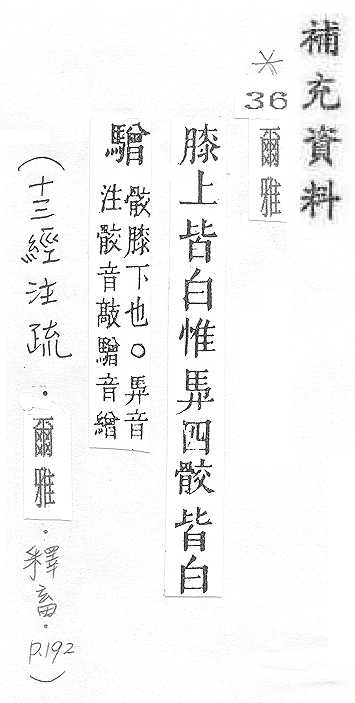 補充資料
*
36
爾雅
膝上皆白惟馵四骹皆白
驓
骹膝下也○馵音
注骹音敲驓音繒
(十三經注疏·爾雅·釋畜·p.192)